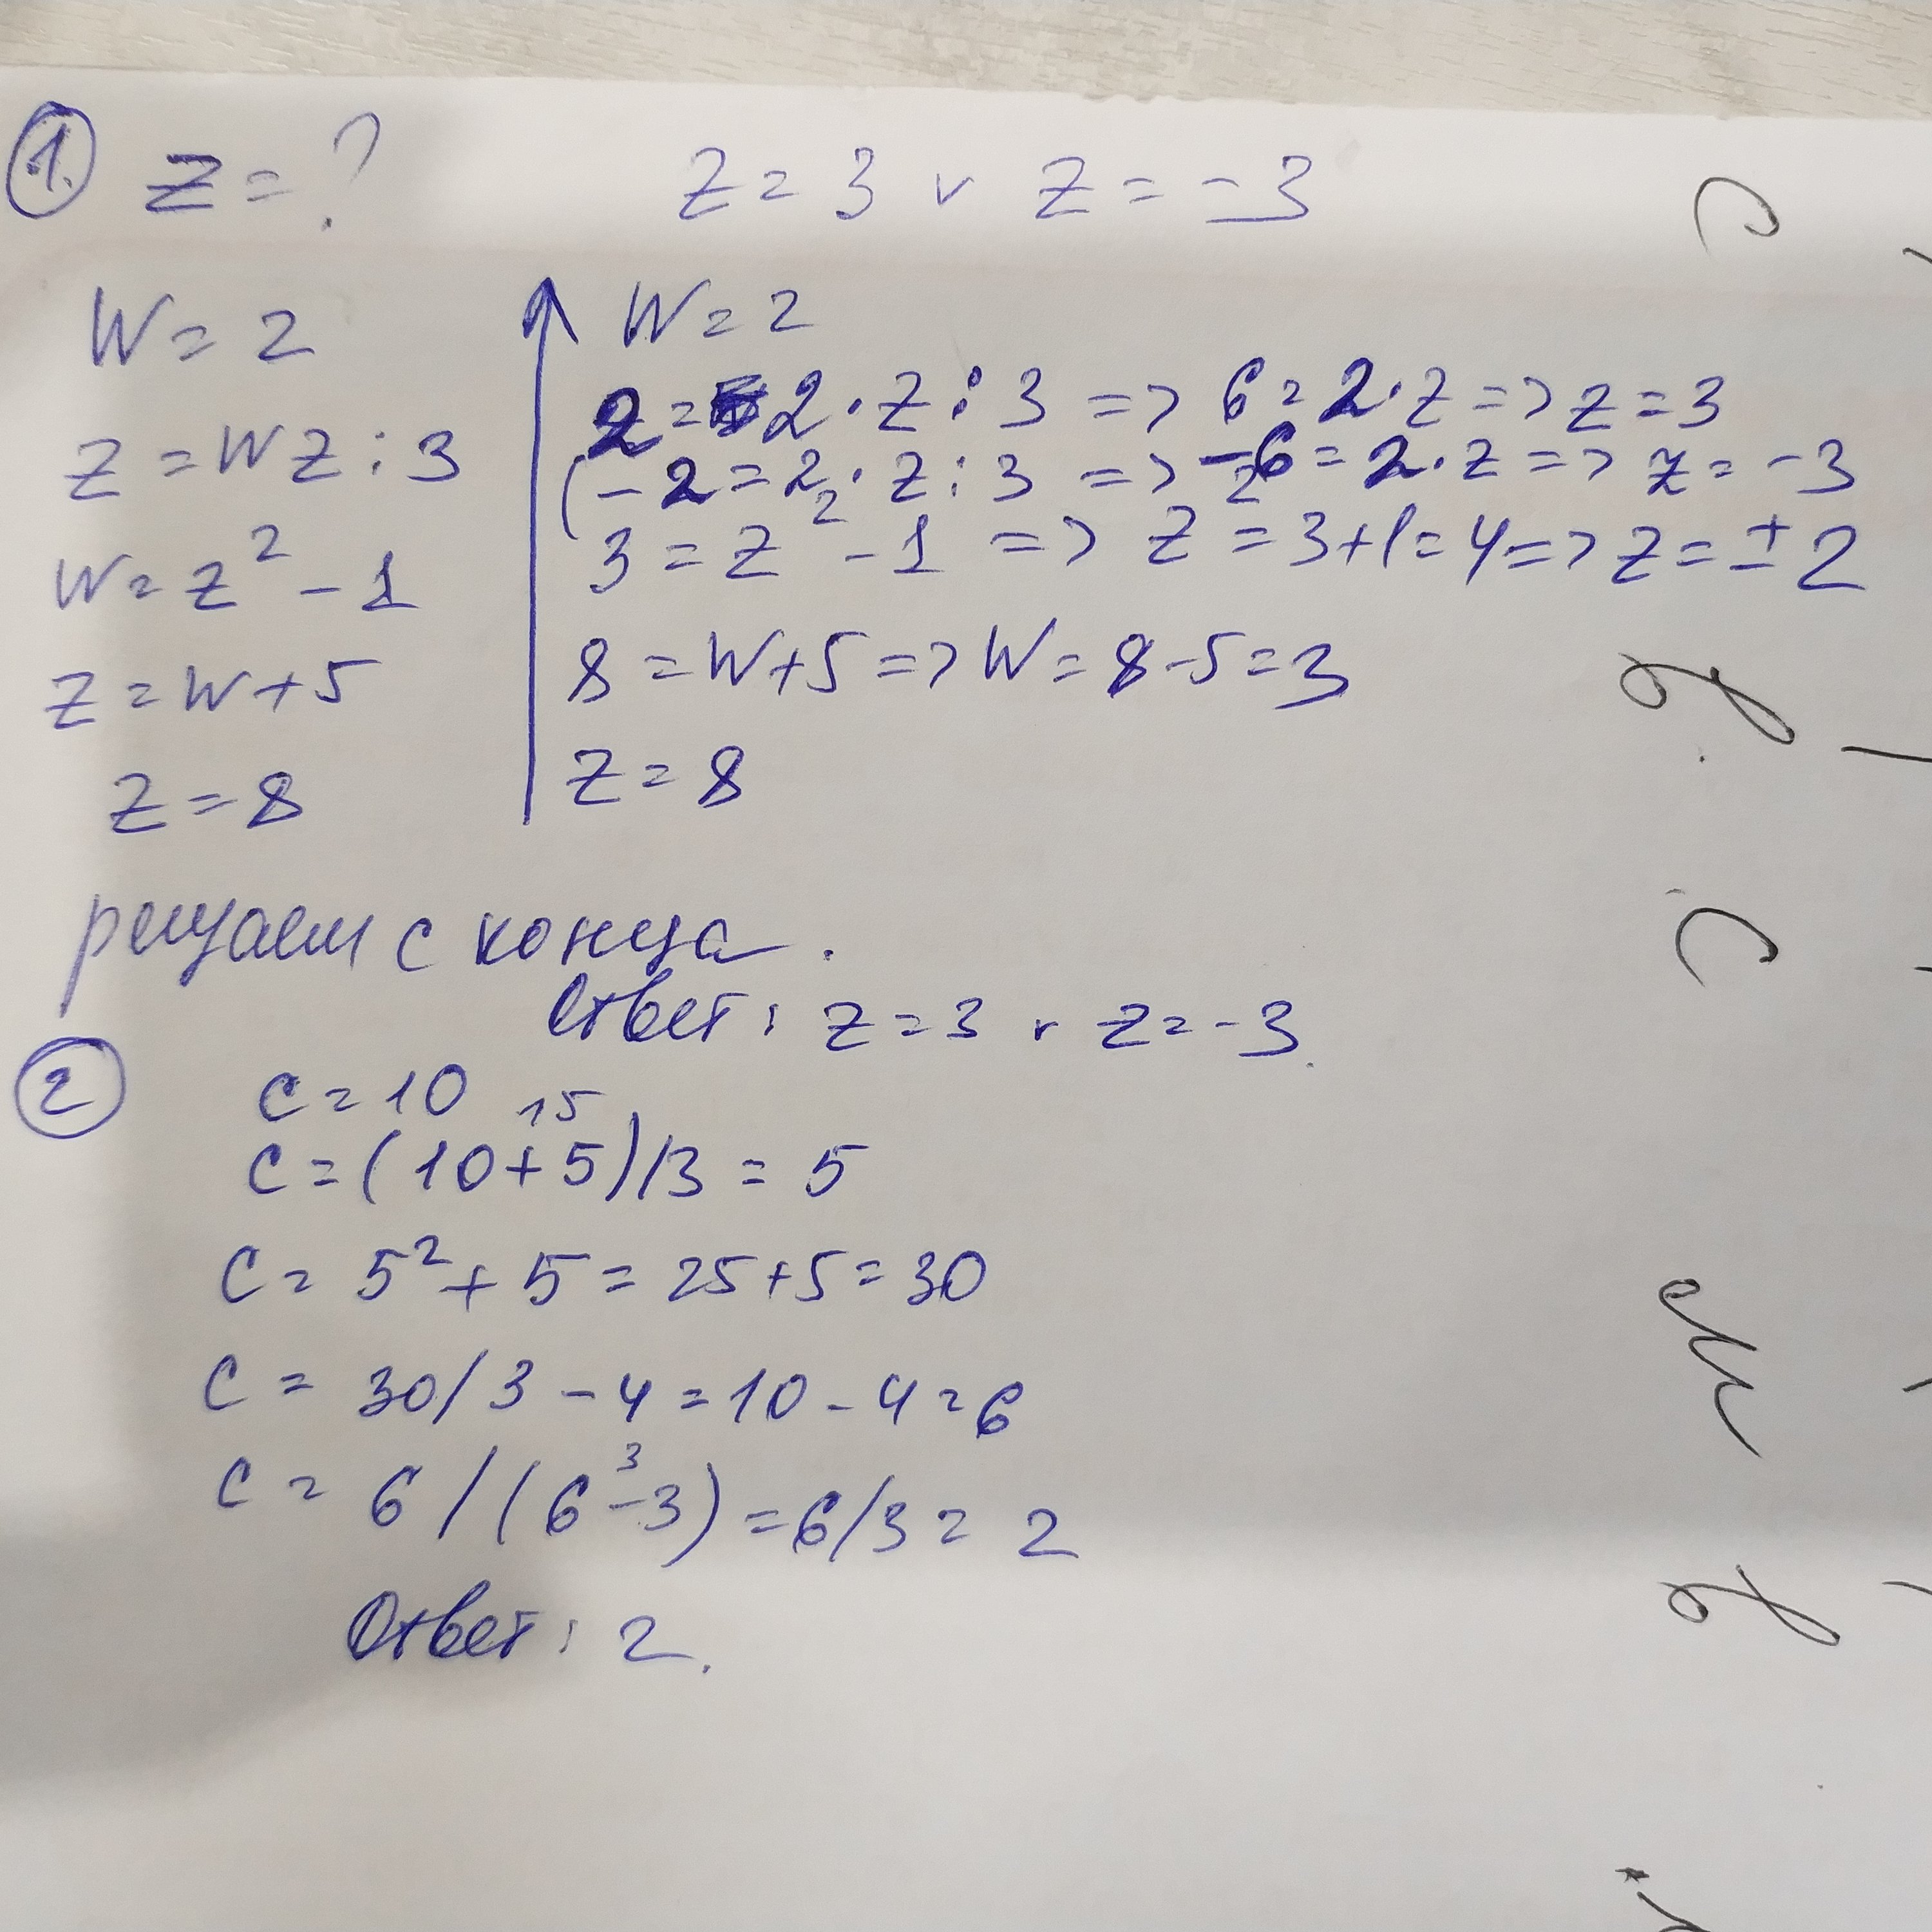 1. z = ?
z = 3 v z = -3
W = 2
z = Wz : 3
W = z² - 1
z = W + 5
z = 8
W = 2
2 = 2 · z : 3 => 6 = 2 · z => z = 3
( -2 = 2 · z : 3 => -6 = 2 · z => z = -3
3 = z² - 1 => z² = 3 + 1 = 4 => z = ± 2
8 = W + 5 => W = 8 - 5 = 3
z = 8
решаем с конца.
Ответ: z = 3 v z = -3.
2
c = 10
15
c = (10 + 5) / 3 = 5
c = 5² + 5 = 25 + 5 = 30
c = 30 / 3 - 4 = 10 - 4 = 6
3
c = 6 / (6 - 3) = 6 / 3 = 2
Ответ: 2.